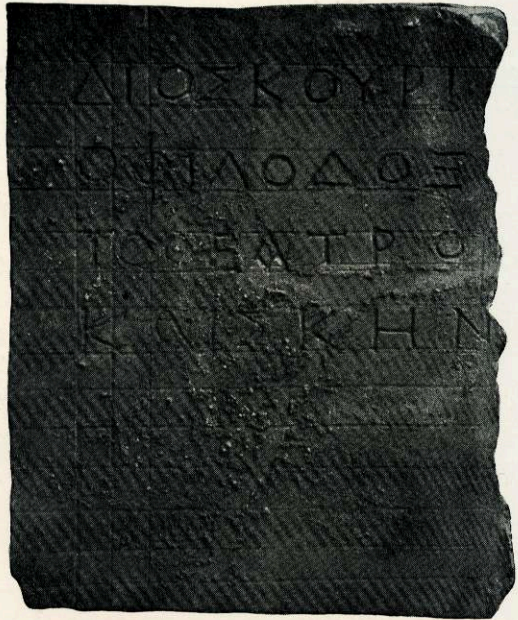 ΔΙΟΣΚΟΥΡΙ
ΟΦΙΛΟΔΟΞ
ΤΟΘΕΑΤΡΟ
ΚΑΙΣΚΗΝ